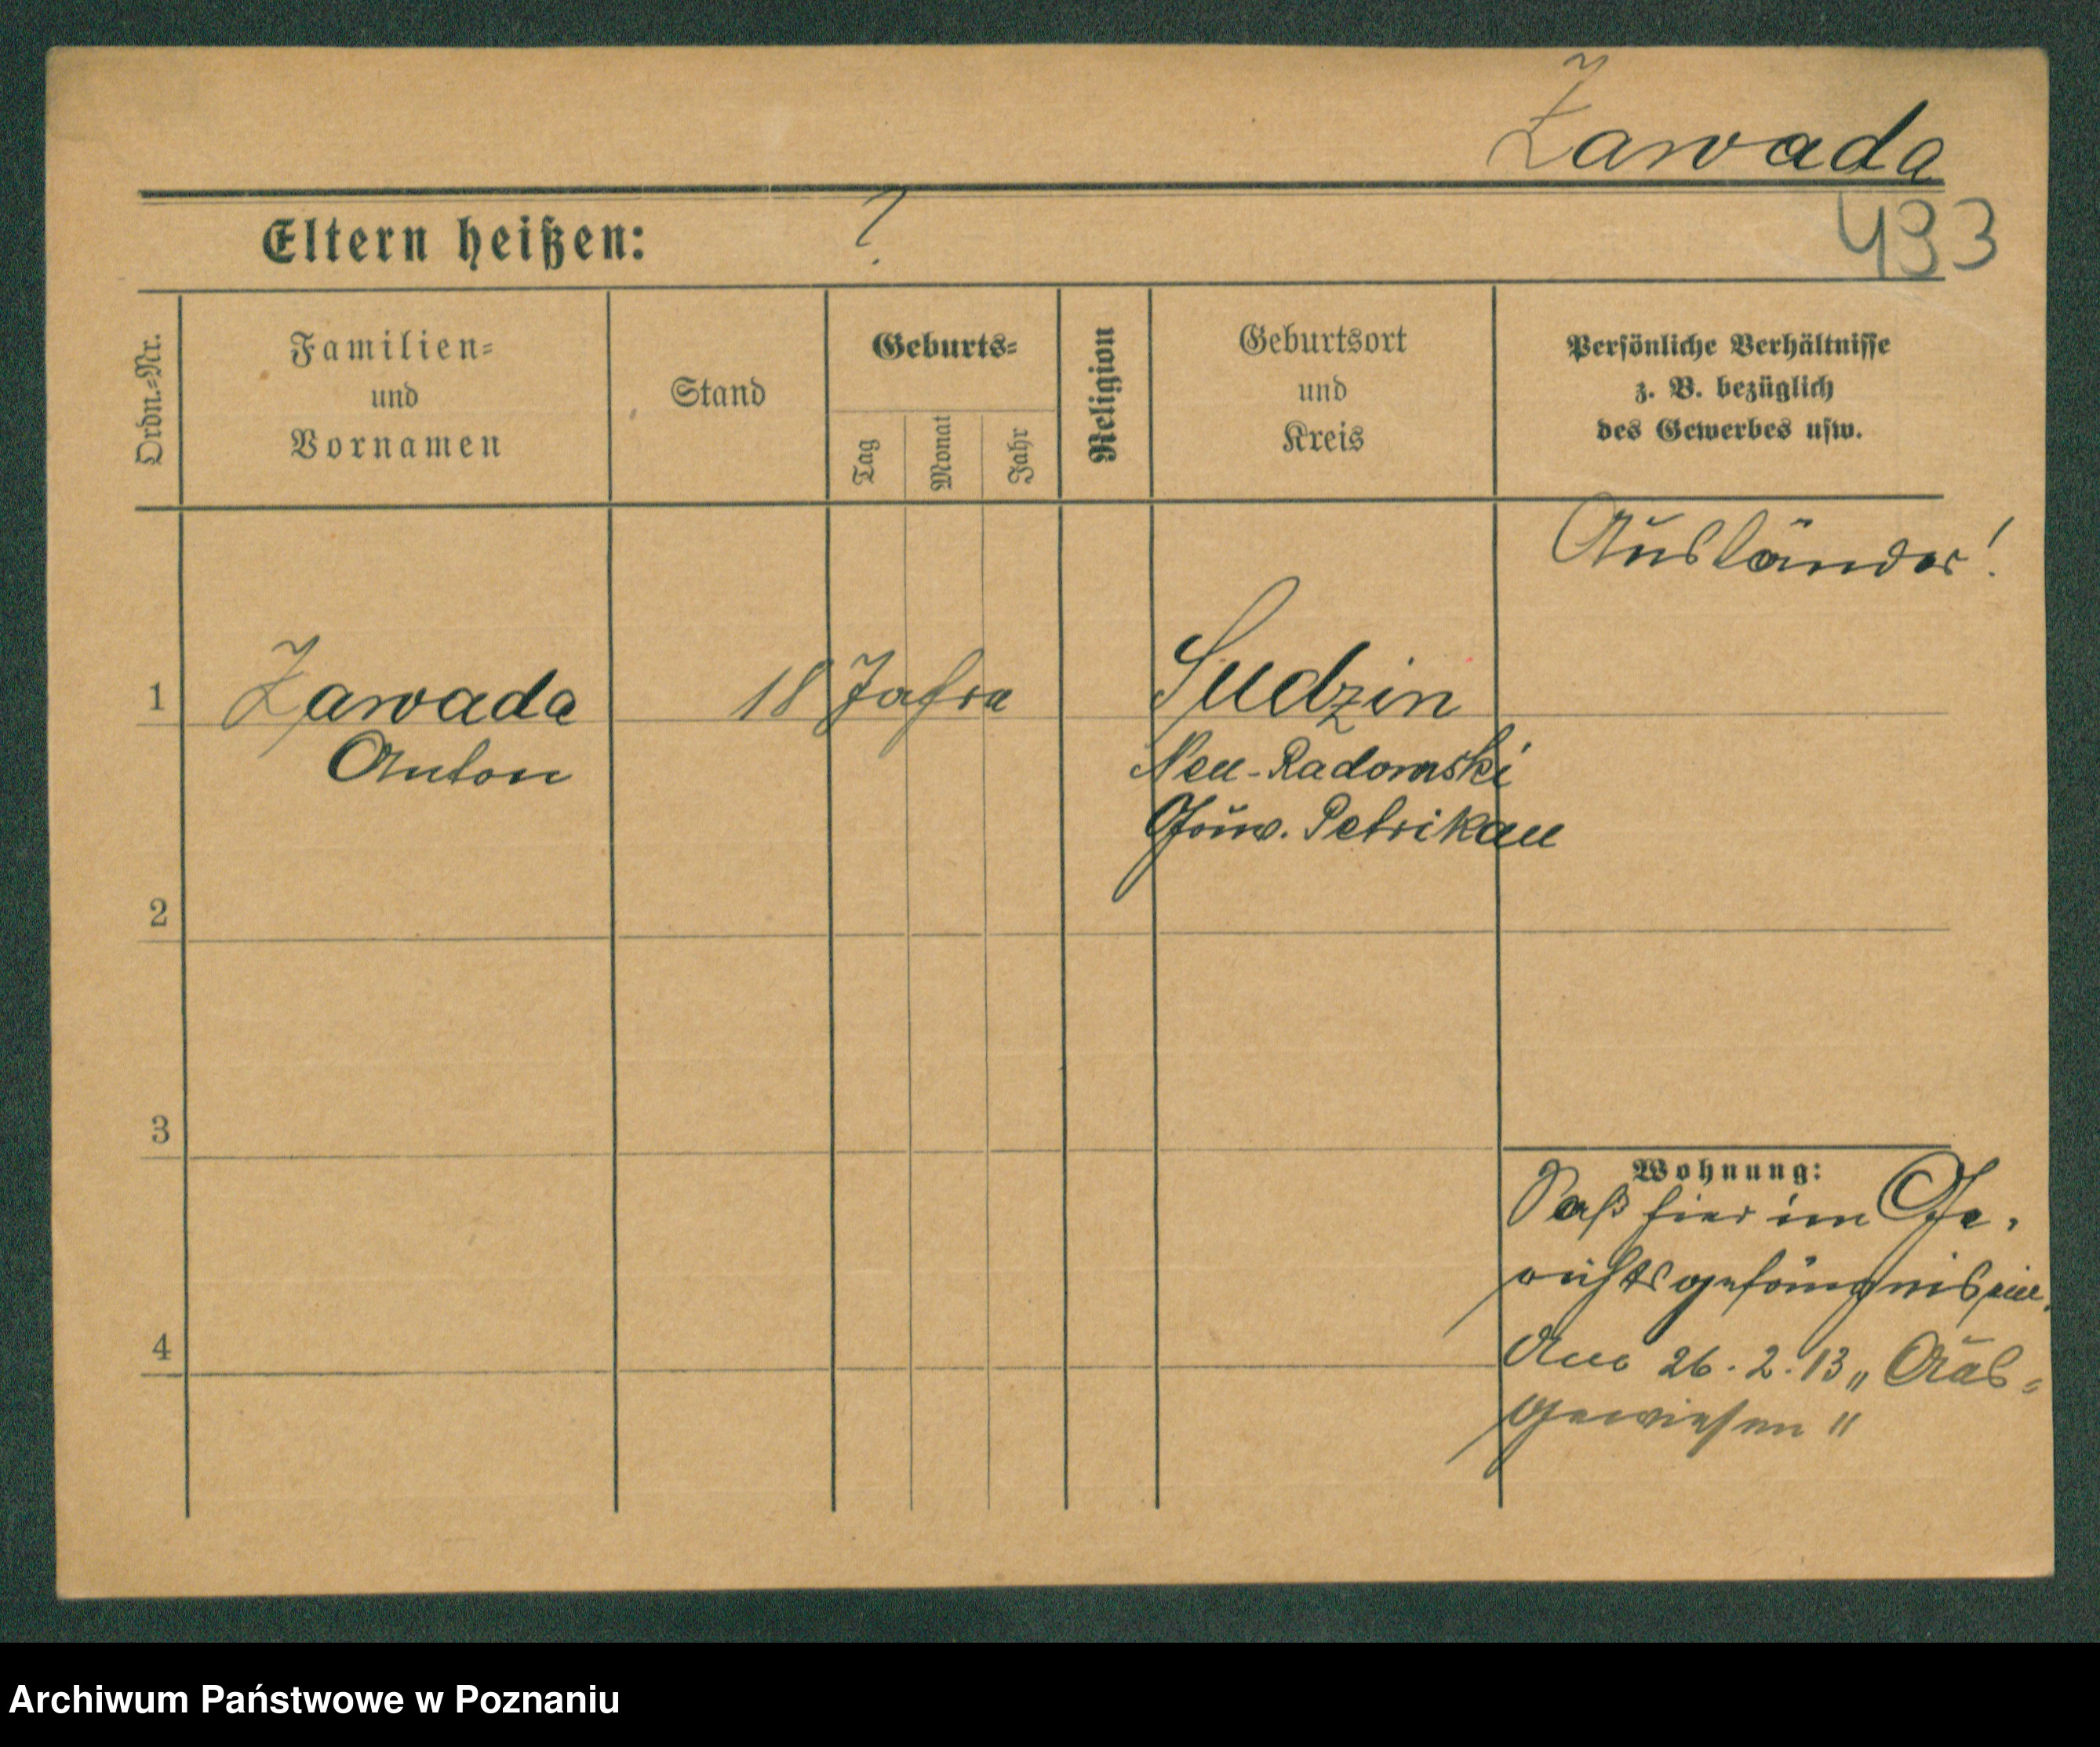 Zawada
433
Eltern heißen: ?
Ordn.=Nr.
Familien=
und
Vornamen
Stand
Geburts=
Tag
Monat
Jahr
Religion
Geburtsort
und
Kreis
Persönliche Verhältnisse
z. B. bezüglich
des Gewerbes usw.
Ausländer!
1 Zawada 18 Jahre Sudzin
Anton Neu-Radomski
Gouv. Petrikau
2
3
Wohnung:
Saß hier im Ge-
richtsgefängnis ein.
4
Am 26.2.13 „Aus=
gewiesen"
Archiwum Państwowe w Poznaniu